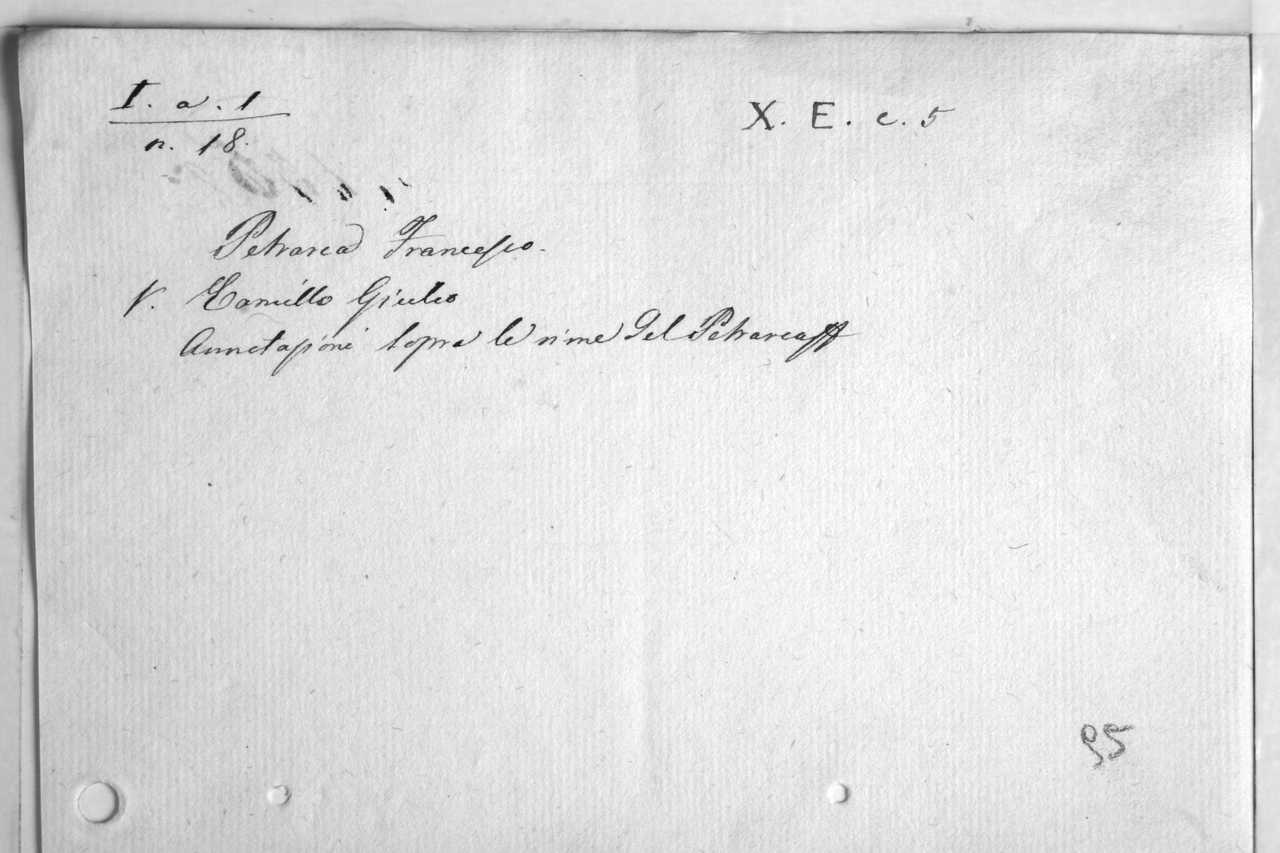 I. a. 1
n. 18.
X. E. c. 5
Petrarca Francesco.
V. Camillo Giulio
Annotazioni sopra le rime del Petrarca
95